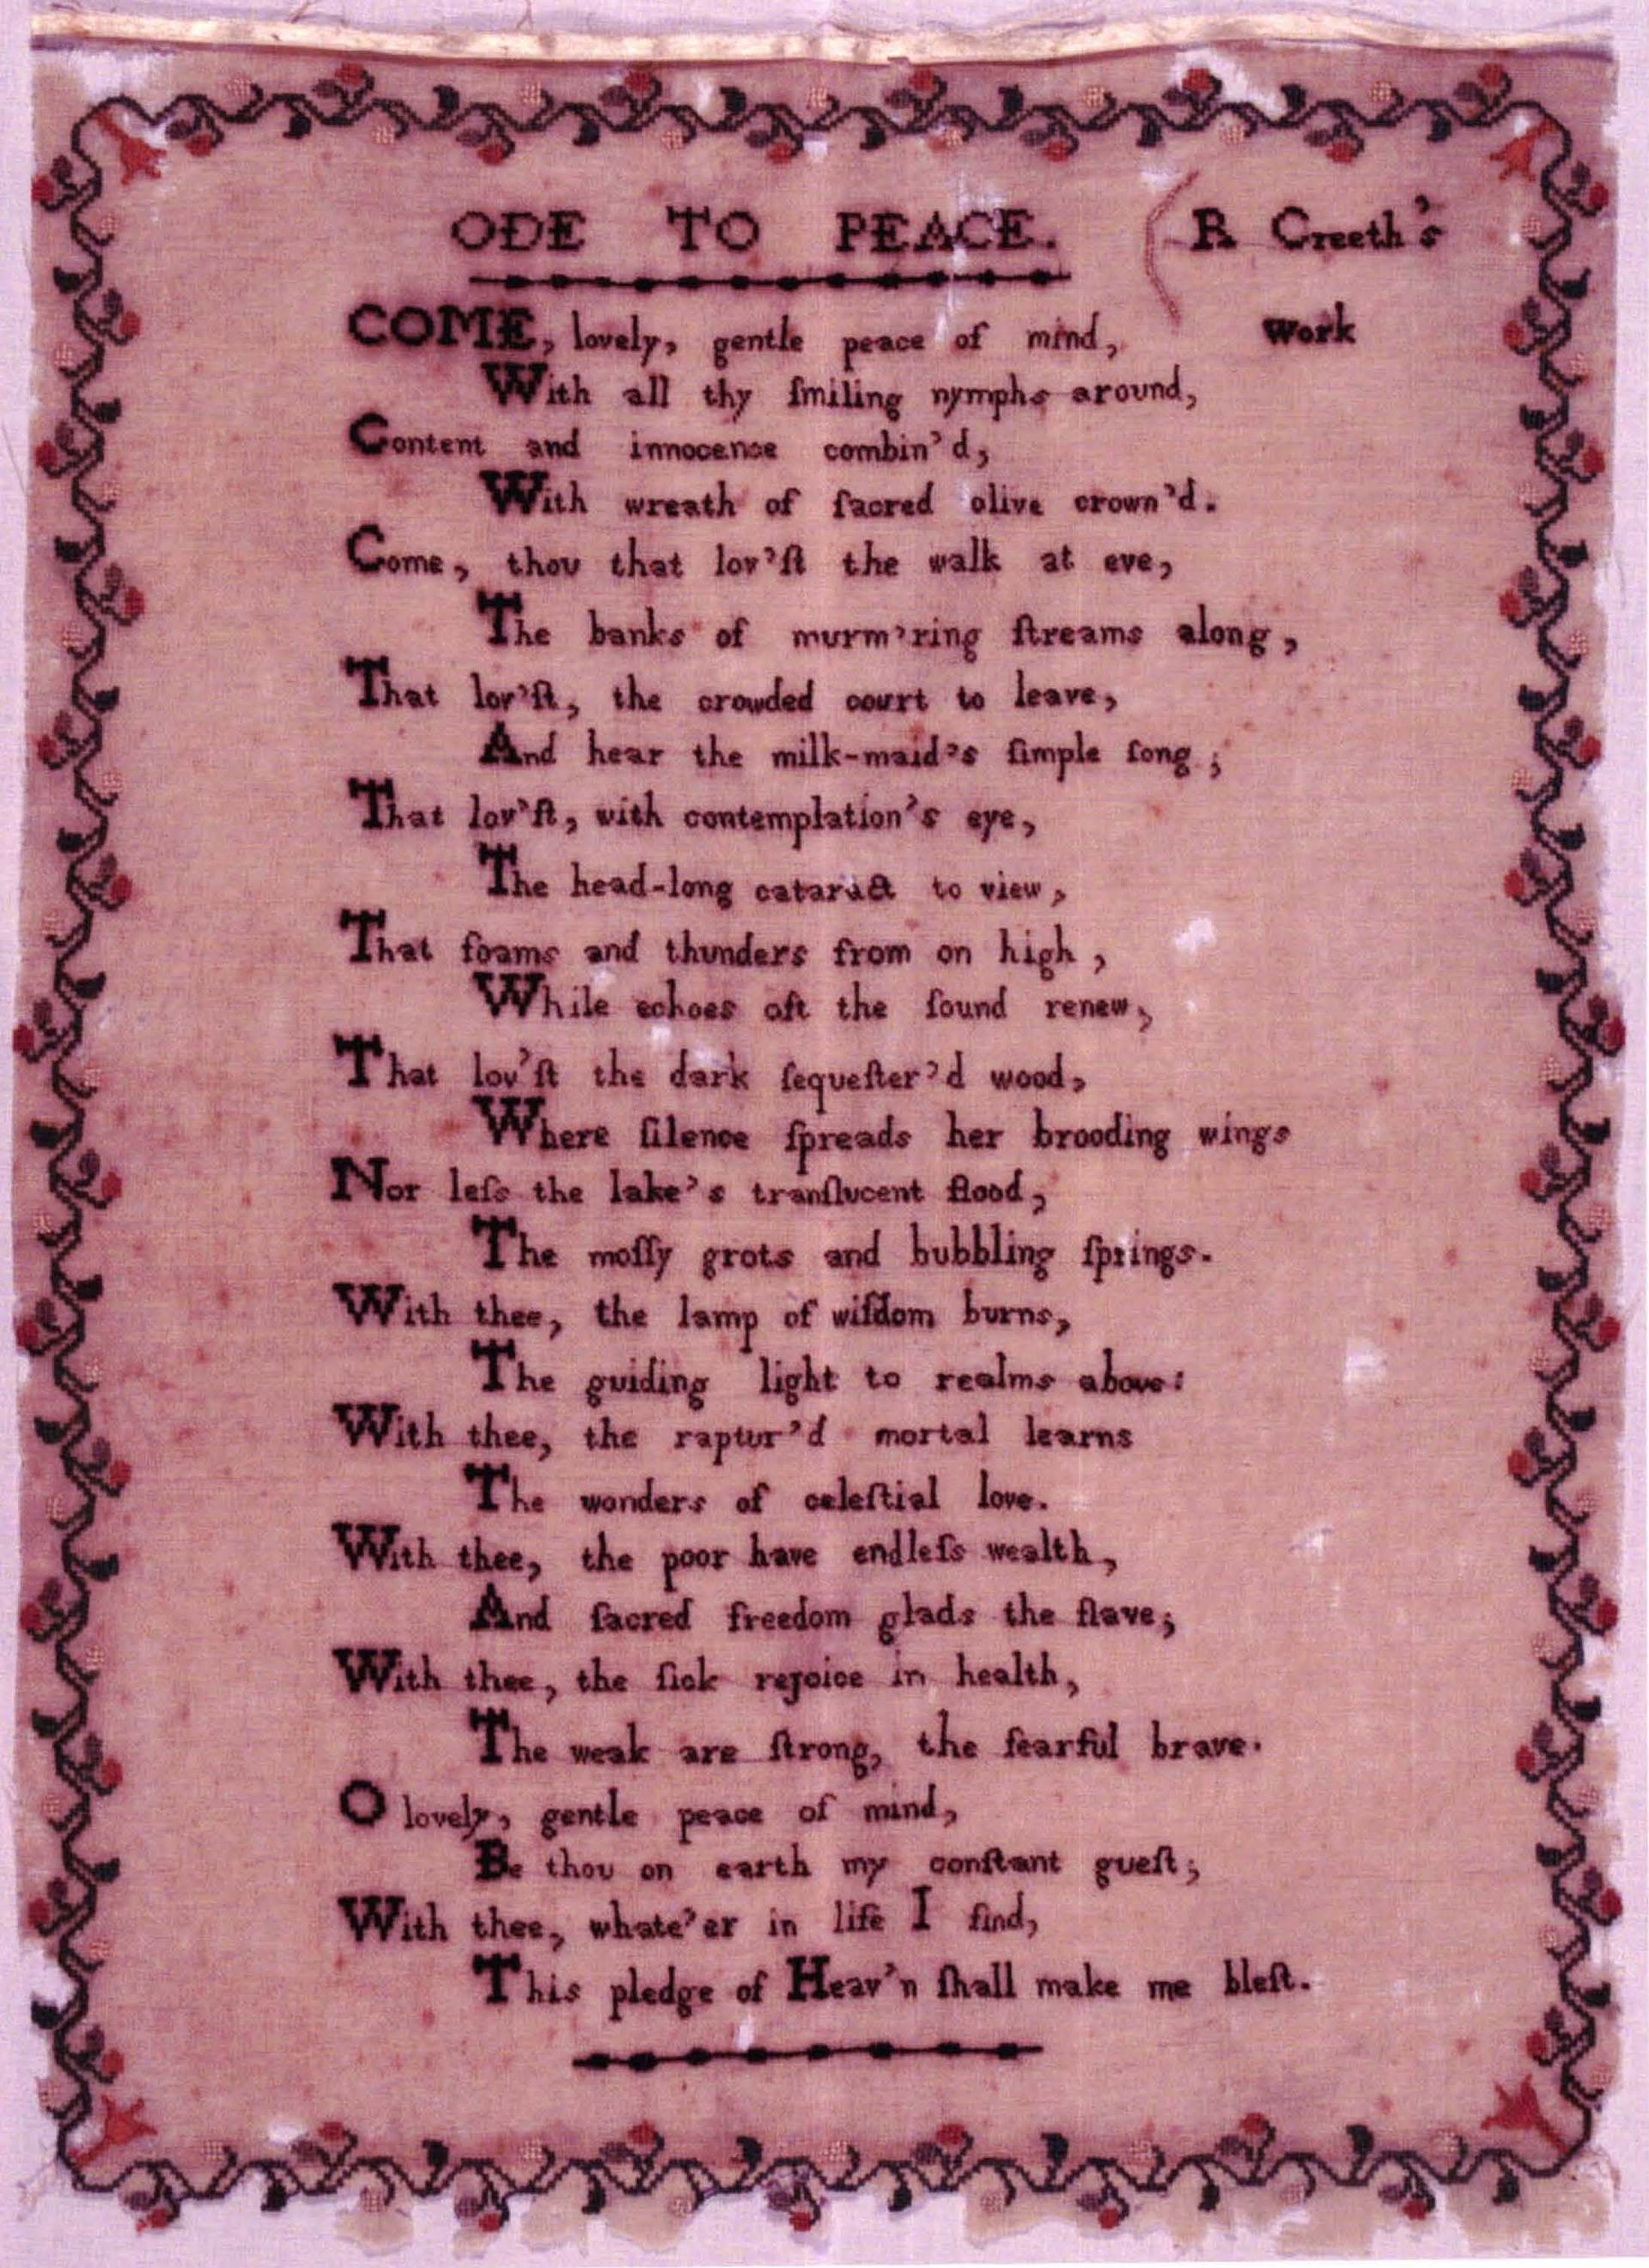 ODE TO PEACE. R Creeth's
work
COME, lovely, gentle peace of mind,
With all thy ſmiling nymphs around,
Content and innocence combin'd,
With wreath of ſacred olive crown'd.
Come, thou that lov'ſt the walk at eve,
The banks of murm'ring ſtreams along,
That lov'ſt, the crowded court to leave,
And hear the milk-maid's ſimple ſong;
That lov'ſt, with contemplation's eye,
The head-long cataract to view,
That foams and thunders from on high,
While echoes oft the ſound renew,
That lov'ſt the dark ſequeſter'd wood,
Where ſilence ſpreads her brooding wings
Nor leſs the lake's tranſlucent flood,
The moſſy grots and bubbling ſprings.
With thee, the lamp of wiſdom burns,
The guiding light to realms above:
With thee, the raptur'd mortal learns
The wonders of celeſtial love.
With thee, the poor have endleſs wealth,
And ſacred freedom glads the ſlave;
With thee, the ſick rejoice in health,
The weak are ſtrong, the fearful brave.
O lovely, gentle peace of mind,
Be thou on earth my conſtant gueſt;
With thee, whate'er in life I find,
This pledge of Heav'n ſhall make me bleſt.